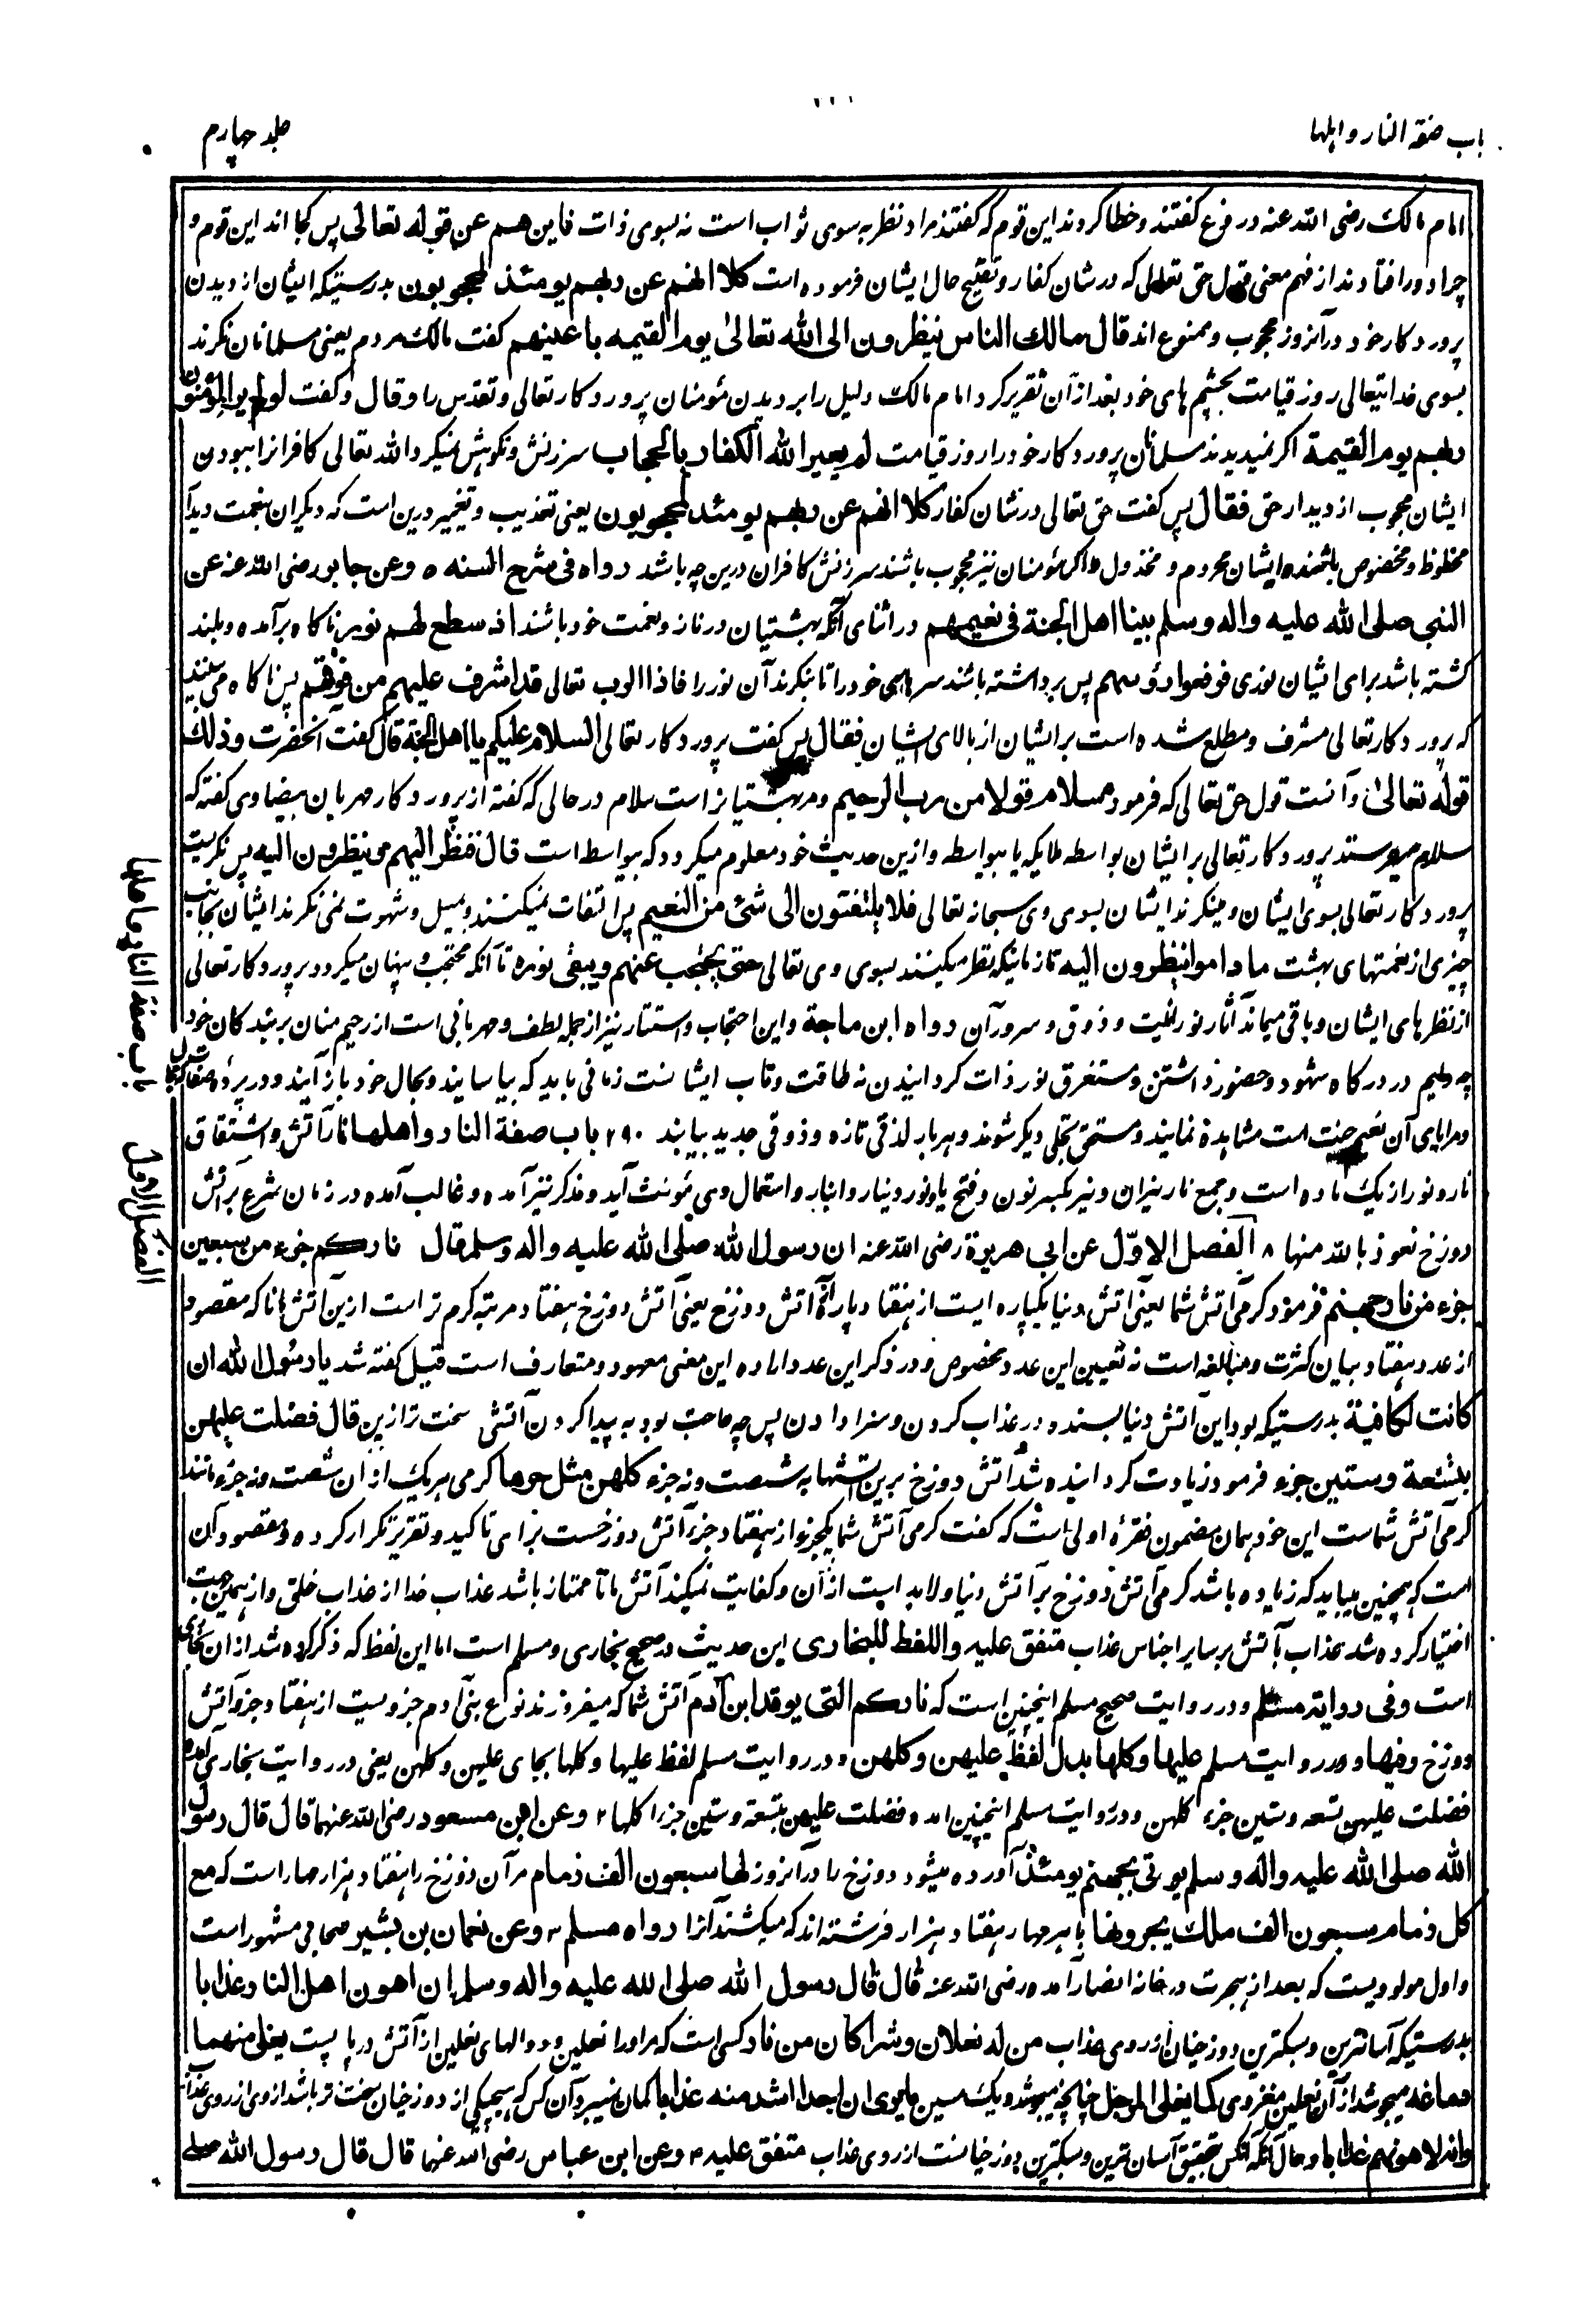 باب صفة النار و اهلها
جلد چهارم
امام مالک رضی الله عنه دروغ گفتند و خطا کردند این قوم که گفتند مراد نظر به سوی ثواب است نه بسوی ذات فاین هم عن قوله تعالی پس کجا اند این قوم و
چرا دور افتادند از فهم معنی قول حق تعالی که در شان کفار و تقبیح حال ایشان فرموده است کلا انهم عن ربهم یومئذ لمحجوبون بدرستیکه ایشان از دیدن
پروردکار خود در آنروز محجوب و ممنوع اند قال مالک الناس ینظرون الی الله تعالیٰ یوم القیمه باعینهم کفت مالک مردم یعنی مسلمانان نکرند
بسوی خدایتعالی روز قیامت بچشم های خود بعد ازان تقریر کرد امام مالک دلیل را بر دیدن مؤمنان پروردکار تعالی و تقدس را و قال و کفت لو لم یر المؤمنون
ربهم یوم القیمة اکر نمیدیدند مسلمانان پروردکار خود را روز قیامت لم یعیر الله الکفار بالحجاب سرزنش و نکوهش نمیکرد الله تعالی کافرانرا ببودن
ایشان محجوب از دیدار حق فقال پس کفت حق تعالی در شان کفار کلا انهم عن ربهم یومئذ لمحجوبون یعنی تعذیب و تعییر درین است که دیکران بنعمت دیدار
محظوظ و مخصوص باشند و ایشان محروم و مخذول و اکر مؤمنان نیز محجوب باشند سرزنش کافران درین چه باشد رواه فی شرح السنه ٥ وعن جابر رضی الله عنه عن
النبی صلی الله علیه واله وسلم بینا اهل الجنة فی نعیمهم در اثنای آنکه بهشتیان در ناز و نعمت خود باشند اذ سطع لهم نور ناکاه برآمده و بلند
کشته باشد برای ایشان نوری فرفعوا رؤسهم پس برداشته باشند سرهای خود را تا بنکرند آن نور را فاذا الرب تعالی قد اشرف علیهم من فوقهم پس ناکاه می بینند
که پروردکار تعالی مشرف و مطلع شده است بر ایشان از بالای ایشان فقال پس کفت پروردکار تعالی السلام علیکم یا اهل الجنة قال کفت آنحضرت وذلک
قوله تعالیٰ و آنست قول حق تعالی که فرمود سلام قولا من رب الرحیم و مر بهشتیانراست سلام در حالی که کفته از پروردکار مهربان بیضاوی کفته که
سلام میرستد پروردکار تعالی بر ایشان بواسطه ملایکه یا بیواسطه و ازین حدیث خود معلوم میکردد که بیواسطه است قال فنظر الیهم و ینظرون الیه پس نکریست
پروردکار تعالی بسوی ایشان و مینکرند ایشان بسوی وی سبحانه تعالی فلا یلتفتون الی شئ من النعیم پس التفات نمیکنند و بمیل و شهوت نمی نکرند ایشان بجانب
چیزی از نعمتهای بهشت ما داموا ینظرون الیه تا زمانیکه نظر میکنند بسوی وی تعالی حتی یحتجب عنهم ویبقی نوره تا آنکه محتجب و پنهان میکردد پروردکار تعالی
از نظرهای ایشان و باقی میماند آثار نورانیت و ذوق و سرور آن رواه ابن ماجة و این احتجاب و استتار نیز از جمله لطف و مهربانی است از رحیم منان بر بندکان خود
چه دایم در درکاه شهود و حضور داشتن و مستغرق نور ذات کردانیدن نه طاقت و تاب ایشانست زمانی باید که بیاسایند و بحال خود باز آیند و در پرده صفات
و مرایای آن نعیم جنت است مشاهده نمایند و مستحق تجلی دیکر شوند و هر بار لذتی تازه و ذوقی جدید بیابند ٢٩٠ باب صفة النار و اهلها نار آتش و اشتقاق
نار و نور از یک ماده است و جمع نار نیران و نیر بکسر نون و فتح یا و نور و نیار و انیار و استعمال وی مؤنث آید و مذکر نیز آمده و غالب آمده در زمان شرع بر آتش
دوزخ نعوذ بالله منها ٨ الفصل الاوّل عن ابی هریرة رضی الله عنه ان رسول الله صلی الله علیه واله وسلم قال نارکم جزء من سبعین
جزء من نار جهنم فرمود کرمی آتش شما یعنی آتش دنیا یکپاره ایست از هفتاد پاره آتش دوزخ یعنی آتش دوزخ هفتاد مرتبه کرم تر است ازین آتش مانا که مقصود
از عدد هفتاد بیان کثرت و مبالغه است نه تعیین این عدد بخصوص و در ذکر این عدد اراده این معنی معهود و متعارف است قیل کفته شد یا رسول الله ان
کانت لکافیة بدرستیکه بود این آتش دنیا بسنده در عذاب کردن و سزا دادن پس چه حاجت بود به پیدا کردن آتشی سخت تر ازین قال فضلت علیهن
بتسعة وستین جزء فرمود زیادت کردانیده شد آتش دوزخ برین آتشها به شصت و نه جزء کلهن مثل حرها کرمی هر یک ازان شصت و نه جزء مانند
کرمی آتش شماست این خود همان مضمون فقرهٔ اولی است که کفت کرمی آتش شما یکجزء از هفتاد جزء آتش دوزخست برای تاکید و تقریر تکرار کرده و مقصود آن
است که همچنین میباید که زیاده باشد کرمی آتش دوزخ بر آتش دنیا و لابد است ازان و کفایت نمیکند آتش ما تا ممتاز باشد عذاب خدا از عذاب خلق و از همین جهت
اختیار کرده شد عذاب آتش بر سایر اجناس عذاب متفق علیه واللفظ للبخاری این حدیث در صحیح بخاری و مسلم است اما این لفظ که ذکر کرده شد ازان بخاری
است وفی روایة مسلم و در روایت صحیح مسلم اینچنین است که نارکم التی یوقد ابن آدم آتش شما که میفروزند نوع بنی آدم جزویست از هفتاد جزو آتش
دوزخ وفیها و در روایت مسلم علیها وکلها بدل لفظ علیهن وکلهن و در روایت مسلم لفظ علیها و کلها بجای علیهن و کلهن یعنی در روایت بخاری آمده
فضلت علیهن تسعه وستین جزء کلهن و در روایت مسلم اینچنین آمده فضلت علیهن بتسعة وستین جزءا کلها ٢ وعن ابن مسعود رضی الله عنهما قال قال رسول
الله صلی الله علیه واله وسلم یؤتی بجهنم یومئذ آورده میشود دوزخ را در آنروز لها سبعون الف زمام مر آن دوزخ را هفتاد هزار مهار است که مع
کل زمام سبعون الف ملک یجرونها با هر مهار هفتاد هزار فرشته اند که میکشند آنرا رواه مسلم ٣ وعن نعمان بن بشیر صحابی مشهور است
و اول مولودیست که بعد از هجرت در خانه انصار آمده رضی الله عنه قال قال رسول الله صلی الله علیه واله وسلم ان اهون اهل النار عذابا
بدرستیکه آسانترین و سبکترین دوزخیان از روی عذاب من له نعلان وشراکان من نار کسی است که مر او را نعلین و دوالهای نعلین از آتش در پا است یغلی منهما
دماغه میجوشد از آن نعلین مغز وی کما یغلی المرجل چنانچه میجوشد دیک مسین ما یری ان احدا اشد منه عذابا کمان نمیبرد آن کس که هیچیکی از دوزخیان سخت تر باشد از وی از روی عذاب
وانه لاهونهم عذابا و حال آنکه آنکس بتحقیق آسان ترین و سبکترین دوزخیانست از روی عذاب متفق علیه ٤ وعن ابن عباس رضی الله عنهما قال قال رسول الله صلی
باب صفة النار و اهلها
الفصل الاول